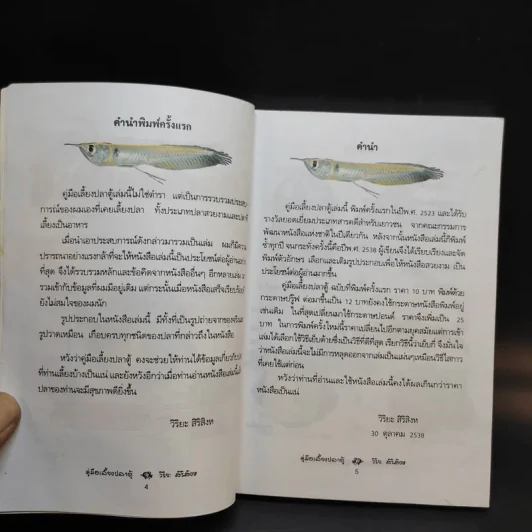 คำนำพิมพ์ครั้งแรก
คู่มือเลี้ยงปลาตู้เล่มนี้ไม่ใช่ตำรา แต่เป็นการรวบรวมประสบ
การณ์ของผมเองที่เคยเลี้ยงปลา ทั้งประเภทปลาสวยงามและปลาที่
เลี้ยงเป็นอาหาร
เมื่อนำเอาประสบการณ์ดังกล่าวมารวมเป็นเล่ม ผมก็มีความ
ปรารถนาอย่างแรงกล้าที่จะให้หนังสือเล่มนี้เป็นประโยชน์ต่อผู้อ่านมาก
ที่สุด จึงได้รวบรวมหลักและข้อคิดจากหนังสืออื่นๆ อีกหลายเล่ม
รวมเข้ากับข้อมูลที่ผมมีอยู่เดิม แต่กระนั้นเมื่อหนังสือเสร็จเรียบร้อย
ยังไม่สมใจของผมนัก
รูปประกอบในหนังสือเล่มนี้ มีทั้งที่เป็นรูปถ่ายจากของจริงและ
รูปวาดเหมือน เกือบครบทุกชนิดของปลาที่กล่าวถึงในหนังสือ
หวังว่าคู่มือเลี้ยงปลาตู้ คงจะช่วยให้ท่านได้ข้อมูลเกี่ยวกับปลา
ที่ท่านเลี้ยงบ้างเป็นแน่ และยังหวังอีกว่าเมื่อท่านอ่านหนังสือเล่มนี้แล้ว
ปลาของท่านจะมีสุขภาพดียิ่งขึ้น
วิริยะ สิริสิงห
คู่มือเลี้ยงปลาตู้ วิริยะ สิริสิงห
4
คำนำ
คู่มือเลี้ยงปลาตู้เล่มนี้ พิมพ์ครั้งแรกในปีพ.ศ. 2523 และได้รับ
รางวัลยอดเยี่ยมประเภทสารคดีสำหรับเยาวชน จากคณะกรรมการ
พัฒนาหนังสือแห่งชาติในปีเดียวกัน หลังจากนั้นหนังสือเล่มนี้ก็พิมพ์
ซ้ำทุกปี จนกระทั่งครั้งนี้คือปีพ.ศ. 2538 ผู้เขียนจึงได้เรียบเรียงและจัด
พิมพ์ตัวอักษร เลือกและเติมรูปประกอบเพื่อให้หนังสือสวยงาม เป็น
ประโยชน์ต่อผู้อ่านมากขึ้น
คู่มือเลี้ยงปลาตู้ ฉบับที่พิมพ์ครั้งแรก ราคา 10 บาท พิมพ์ด้วย
กระดาษปรู๊ฟ ต่อมาขึ้นเป็น 12 บาทยังคงใช้กระดาษหนังสือพิมพ์อยู่
เช่นเดิม ในที่สุดเปลี่ยนมาใช้กระดาษปอนด์ ราคาจึงเพิ่มเป็น 25
บาท ในการพิมพ์ครั้งใหม่นี้ราคาเปลี่ยนไปอีกตามยุคสมัยแต่การเข้า
เล่มได้เลือกใช้วิธีเย็บด้ายซึ่งเป็นวิธีที่ดีที่สุด เรียกวิธีนี้ว่าเย็บกี่ จึงมั่นใจ
ว่าหนังสือเล่มนี้จะไม่มีการหลุดออกจากเล่มเป็นแผ่นๆเหมือนวิธีไสกาว
ที่เคยใช้แต่ก่อน
หวังว่าท่านที่อ่านและใช้หนังสือเล่มนี้คงได้ผลเกินกว่าราคา
หนังสือเป็นแน่
วิริยะ สิริสิงห
30 ตุลาคม 2538
คู่มือเลี้ยงปลาตู้ วิริยะ สิริสิงห
5